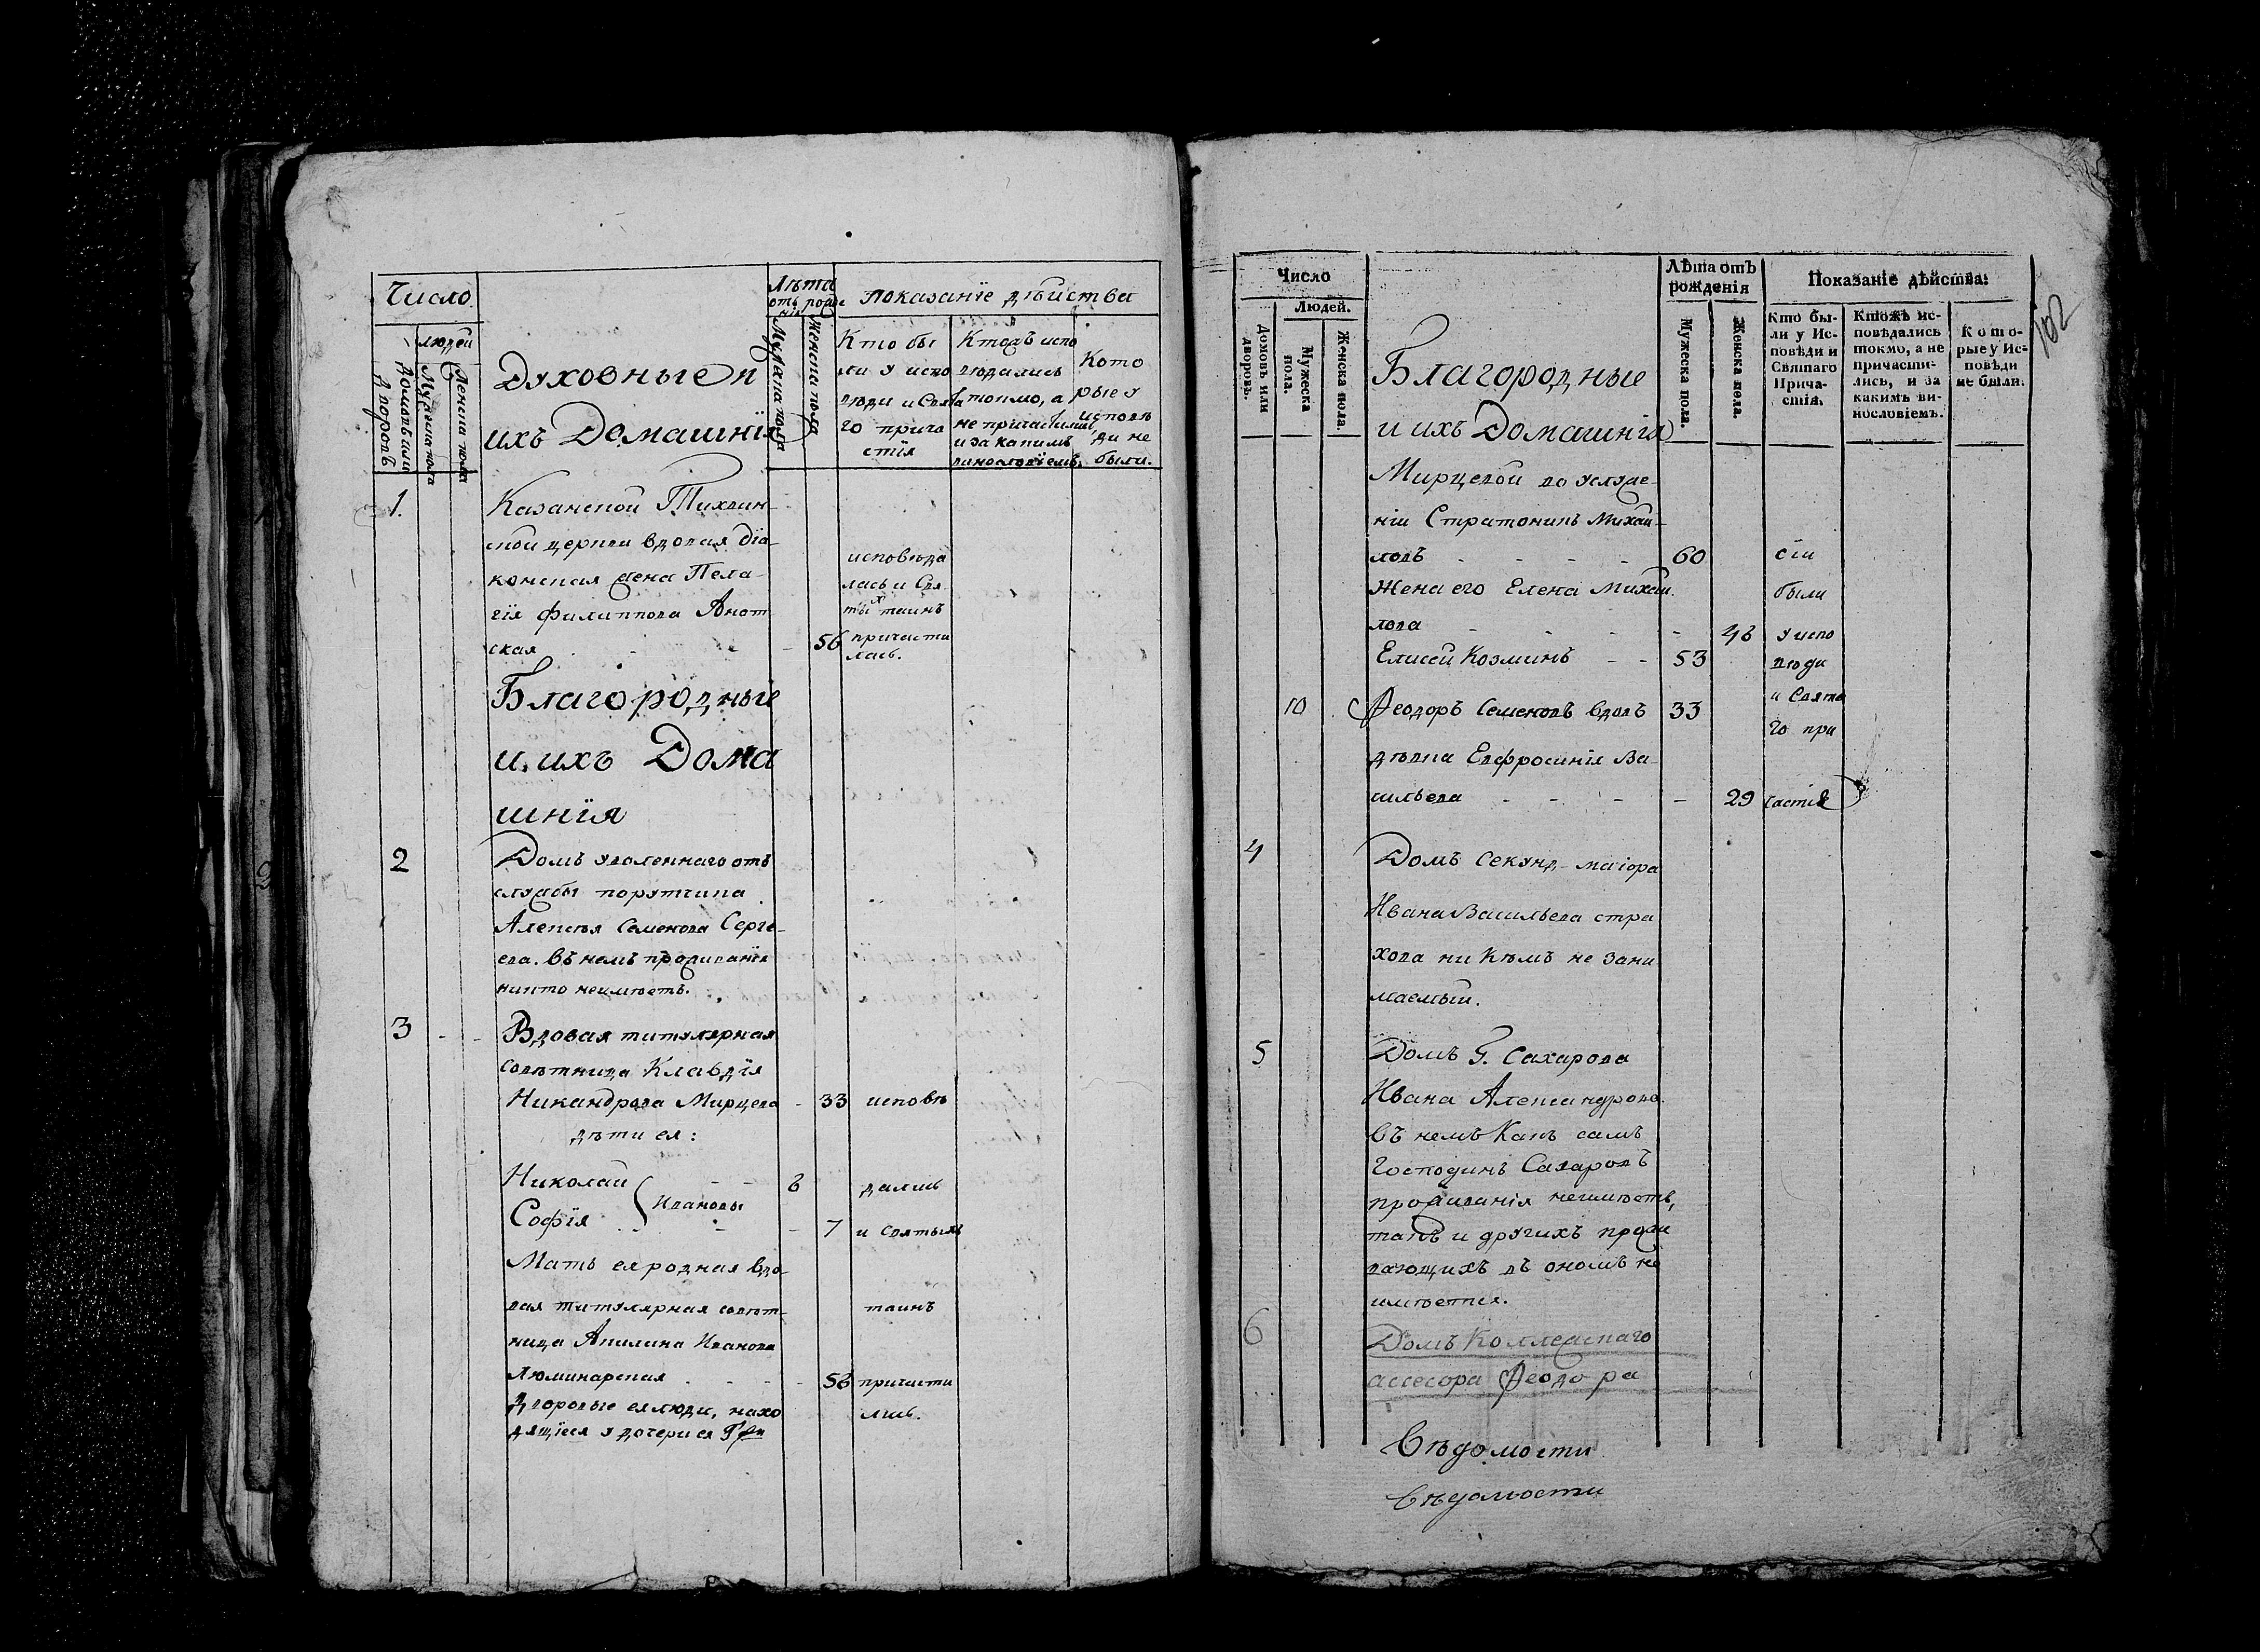 Число.
людей
Домовъ или
Дворовъ
Мужеска пола
Женска пола
Духовные и
ихъ Домашнія
Лѣта
отъ рожде
нія
Мужеска пола
Женска пола
Показаніе дѣйства
Кто бы
ли у испо
вѣди и Свята
го прича
стія
Ктожъ испо
вѣдались
токмо, а
не причастились
и за какимъ
винословіемъ.
Кото
рые у
исповѣ
ди не
были.
1.
Казанской Тихвин-
ской церкви вдовая діа-
конская жена Пела-
гія Филиппова
ская - - - 56
исповѣда
лась и Свя
тыхъ таинъ
причасти
лась.
Благородные
и ихъ Дома
шнія
2
Домъ уволеннаго отъ
службы порутчика
Алексѣя Семенова Серге-
ева. Въ немъ проживанія
никто неимѣетъ.
3 - -
Вдовая титулярная
совѣтница Клавдія
Никандрова Мирцева - 33 исповѣ
дѣти ея:
Николай - - 8 дались
Ивановы
Софія - - - 7 и Святыхъ
Мать ея родная вдо-
вая титулярная совѣт- таинъ
ница Акилина Иванова
Люминарская - - - - 58 причасти
Дворовые ея люди, нахо лись.
дящіеся у дочери ея
102
Число
Людей.
Домовъ или
дворовъ.
Мужеска
пола.
Женска пола.
Благородные
и ихъ Домашнія
Лѣта отъ
рожденія
Мужеска пола.
Женска пола.
Показаніе дѣйства:
Кто бы-
ли у Ис-
повѣди и
Святаго
Прича-
стія.
Ктожъ ис-
повѣдались
токмо, а не
причасти-
лись, и за
какимъ ви-
нословіемъ.
Кото-
рые у Ис-
повѣди
не были.
Мирцевой во услуже-
ніи Стратоникъ Михай-
ловъ - - - - 60 сіи
Жена его Елена Михай были
лова - - - - - 46 у испо
Елисей Козминъ - - 53 вѣди
и Свята
10 Феодоръ Семеновъ вдовъ 33
го при
дѣвка Евфросинія Ва-
сильева - - - - 29 частія
4
Домъ Секунд-маіора
Ивана Васильева стра
хова ни кѣмъ не зани
маемый.
5
Домъ Г. Сахарова
Ивана Александрова.
Въ немъ какъ самъ
Господинъ Сахаровъ
проживанія неимѣетъ,
такъ и другихъ прожи
вающихъ въ ономъ не
имѣется.
6
Домъ Коллежскаго
ассесора Феодора
Вѣдомости
Вѣдомости